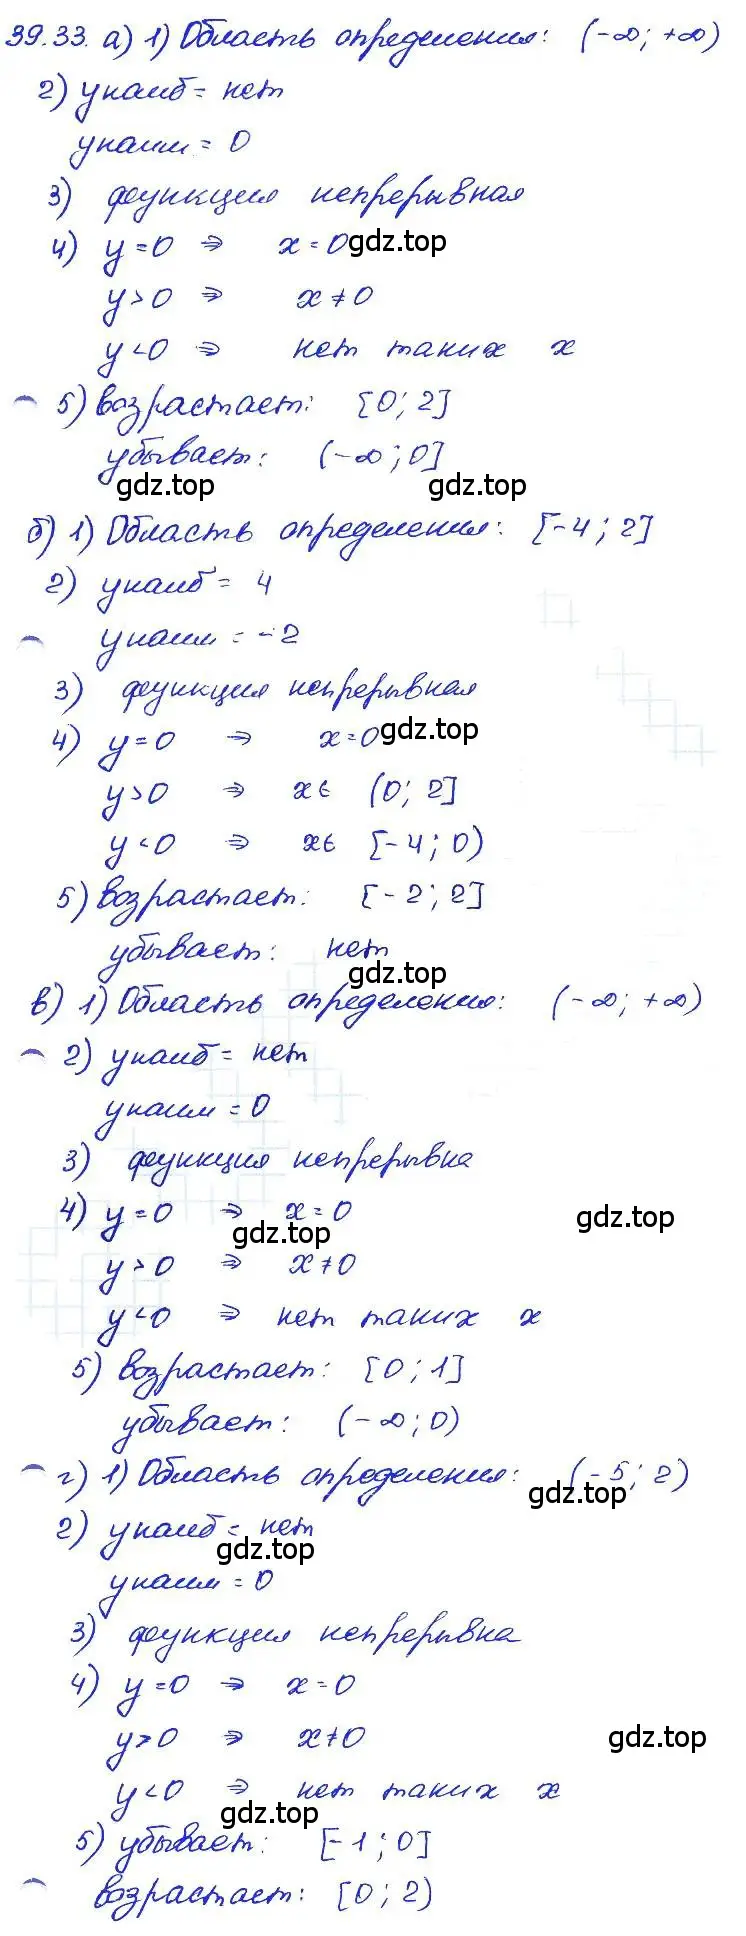 39.33. а) 1) Область определения: (-∞; +∞)
2) yнаиб = нет
yнаим = 0
3) функция непрерывная
4) y=0 ⇒ x=0 gdz.top
y>0 ⇒ x≠0
y<0 ⇒ нет таких x
5) возрастает: [0; 2]
убывает: (-∞; 0]
gdz.top gdz.top
б) 1) Область определения: [-4; 2]
2) yнаиб = 4
yнаим = -2
3) функция непрерывная
4) y=0 ⇒ x=0 gdz.top
y>0 ⇒ x∈ (0; 2]
y<0 ⇒ x∈ [-4; 0)
5) возрастает: [-2; 2]
убывает: нет
gdz.top
в) 1) Область определения: (-∞; +∞)
2) yнаиб = нет
yнаим = 0
3) функция непрерывна
4) y=0 ⇒ x=0
gdz.top gdz.top
y>0 ⇒ x≠0
y<0 ⇒ нет таких x
5) возрастает: [0; 1]
убывает: (-∞; 0)
г) 1) Область определения: (-5; 2)
gdz.top
2) yнаиб = нет
gdz.top
yнаим = 0
3) функция непрерывна
4) y=0 ⇒ x=0
y>0 ⇒ x≠0 gdz.top
y<0 ⇒ нет таких x
gdz.top
5) убывает: [-1; 0]
возрастает: [0; 2)